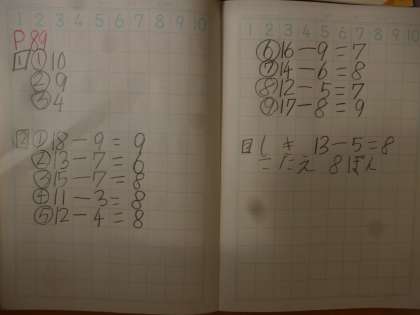 1 2 3 4 5 6 7 8 9 10
P.89
1 ① 10
② 9
③ 4
2 ① 18-9=9
② 13-7=6
③ 15-7=8
④ 11-3=8
⑤ 12-4=8
1 2 3 4 5 6 7 8 9 10
⑥ 16-9=7
⑦ 14-6=8
⑧ 12-5=7
⑨ 17-8=9
3 しき 13-5=8
こたえ 8ぽん